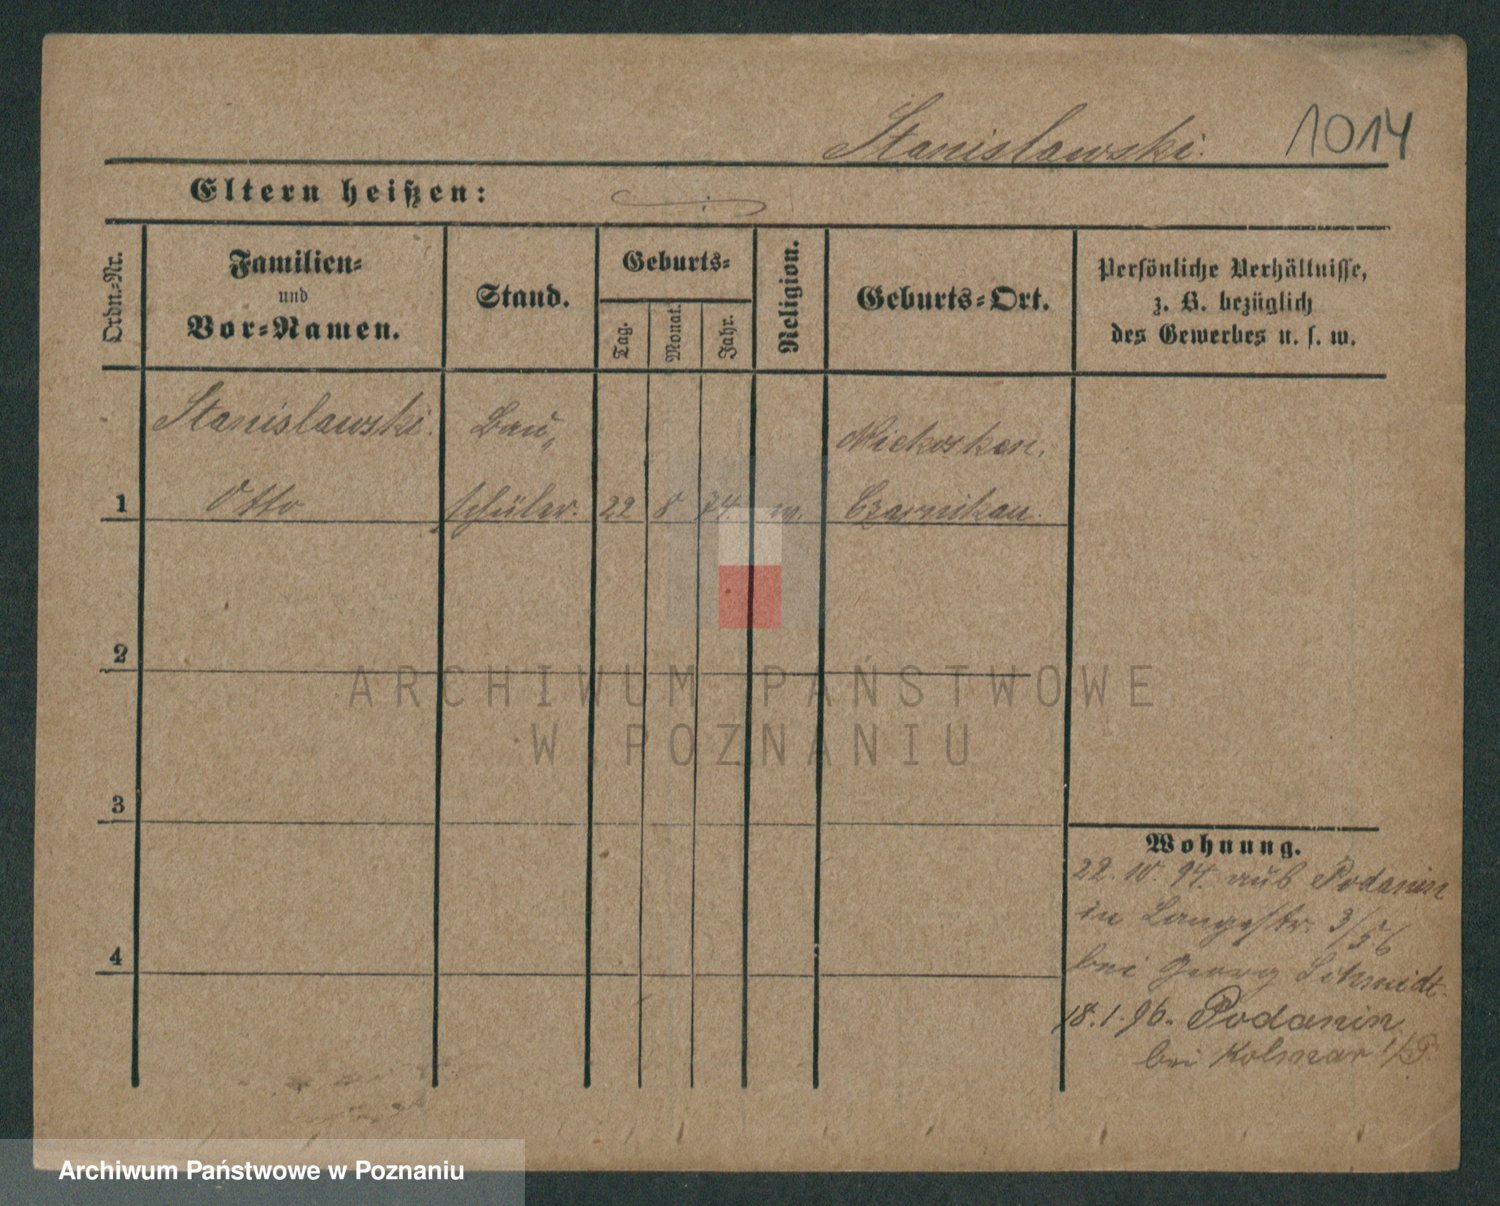 Stanislawski.
1014
Eltern heißen:
Ordn.-Nr.
Familien-
und
Vor-Namen.
Stand.
Geburts-
Tag.
Monat.
Jahr.
Religion.
Geburts-Ort.
Persönliche Verhältnisse,
z. B. bezüglich
des Gewerbes u. s. w.
Stanislawski. Bau„ Niekosken,
1 Otto schüler. 22 8 74 Czarnikau.
2
3
4
Wohnung.
22. 10. 94. aus Podanin
in Langestr. 3/56
bei Georg Schmidt.
18. 1. 96. Podanin
bei Kolmar i/P.
ARCHIWUM PAŃSTWOWE
W POZNANIU
Archiwum Państwowe w Poznaniu